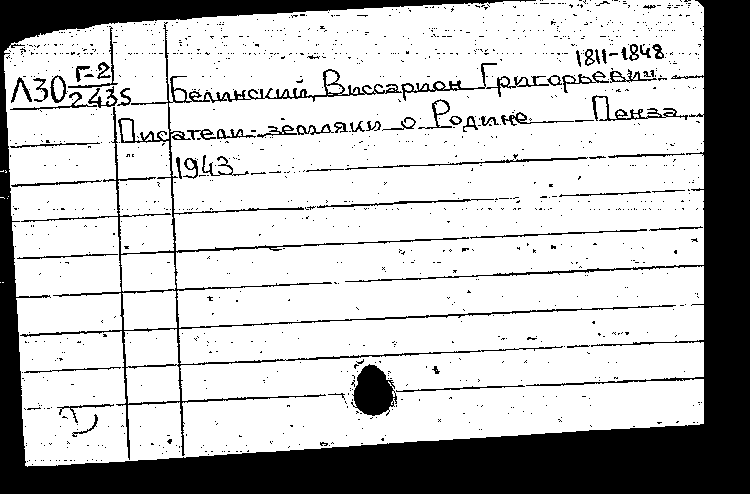 1811-1848
Л30 Г-2/2435 Белинский, Виссарион Григорьевич.
Писатели-земляки о Родине Пенза,
1943.